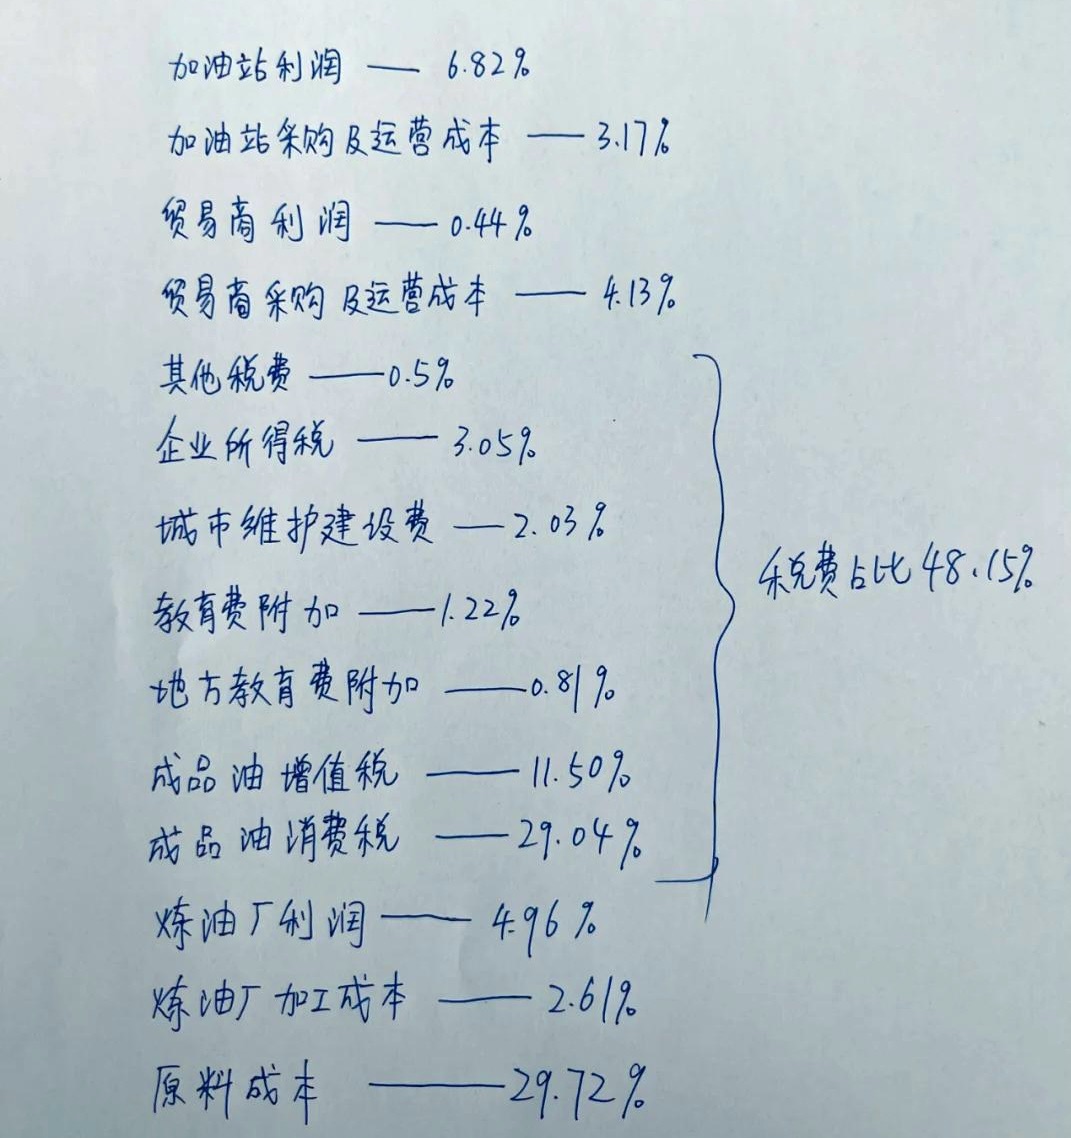 加油站利润 —— 6.82%
加油站采购及运营成本 —— 3.17%
贸易商利润 —— 0.44%
贸易商采购及运营成本 —— 4.13%
其他税费 —— 0.5%
企业所得税 —— 3.05%
城市维护建设费 —— 2.03%
税费占比48.15%
教育费附加 —— 1.22%
地方教育费附加 —— 0.81%
成品油增值税 —— 11.50%
成品油消费税 —— 29.04%
炼油厂利润 —— 4.96%
炼油厂加工成本 —— 2.61%
原料成本 —— 29.72%